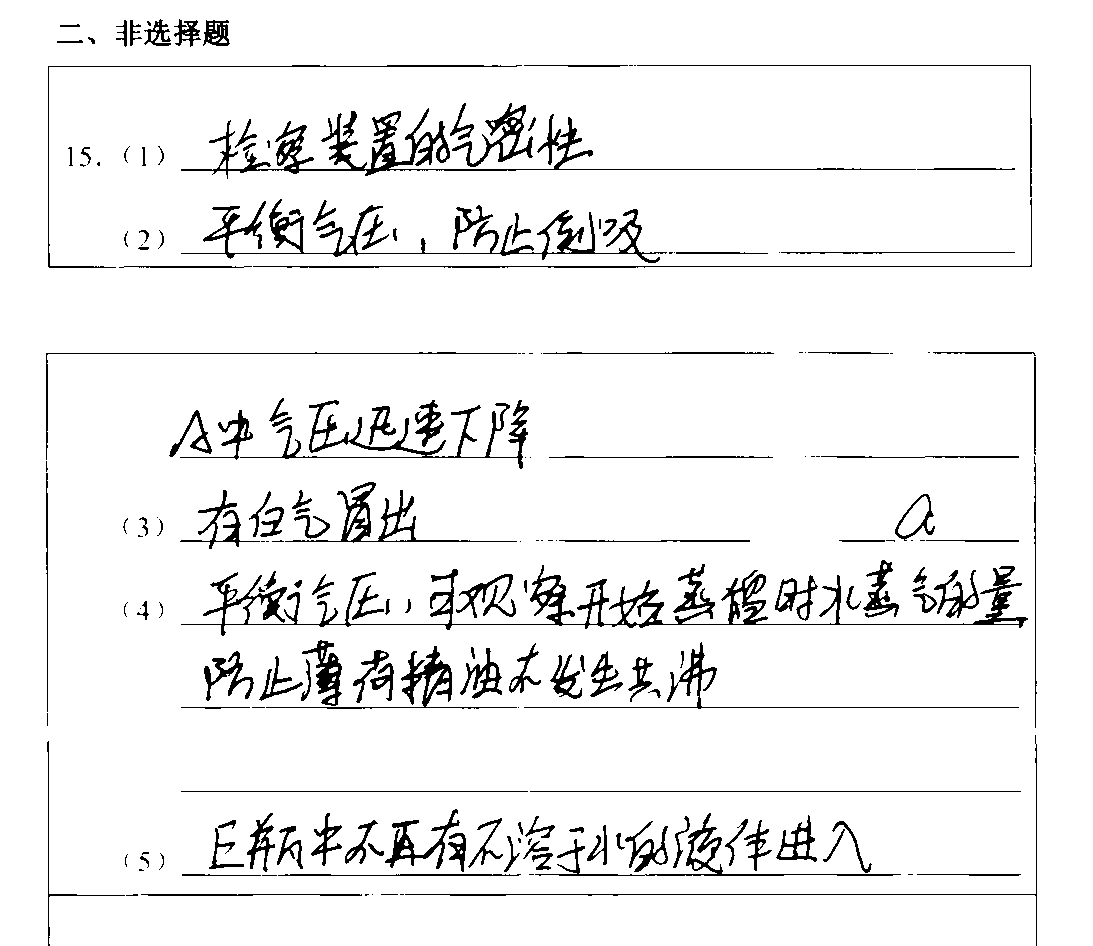 二、非选择题
15.（1） 检察装置的气密性
（2） 平衡气压，防止倒吸
A中气压迅速下降
（3） 有白气冒出 a
（4） 平衡气压，可观察开始蒸馏时水蒸气的量
防止薄荷精油不发生共沸
（5） E瓶中不再有不溶于水的液体进入